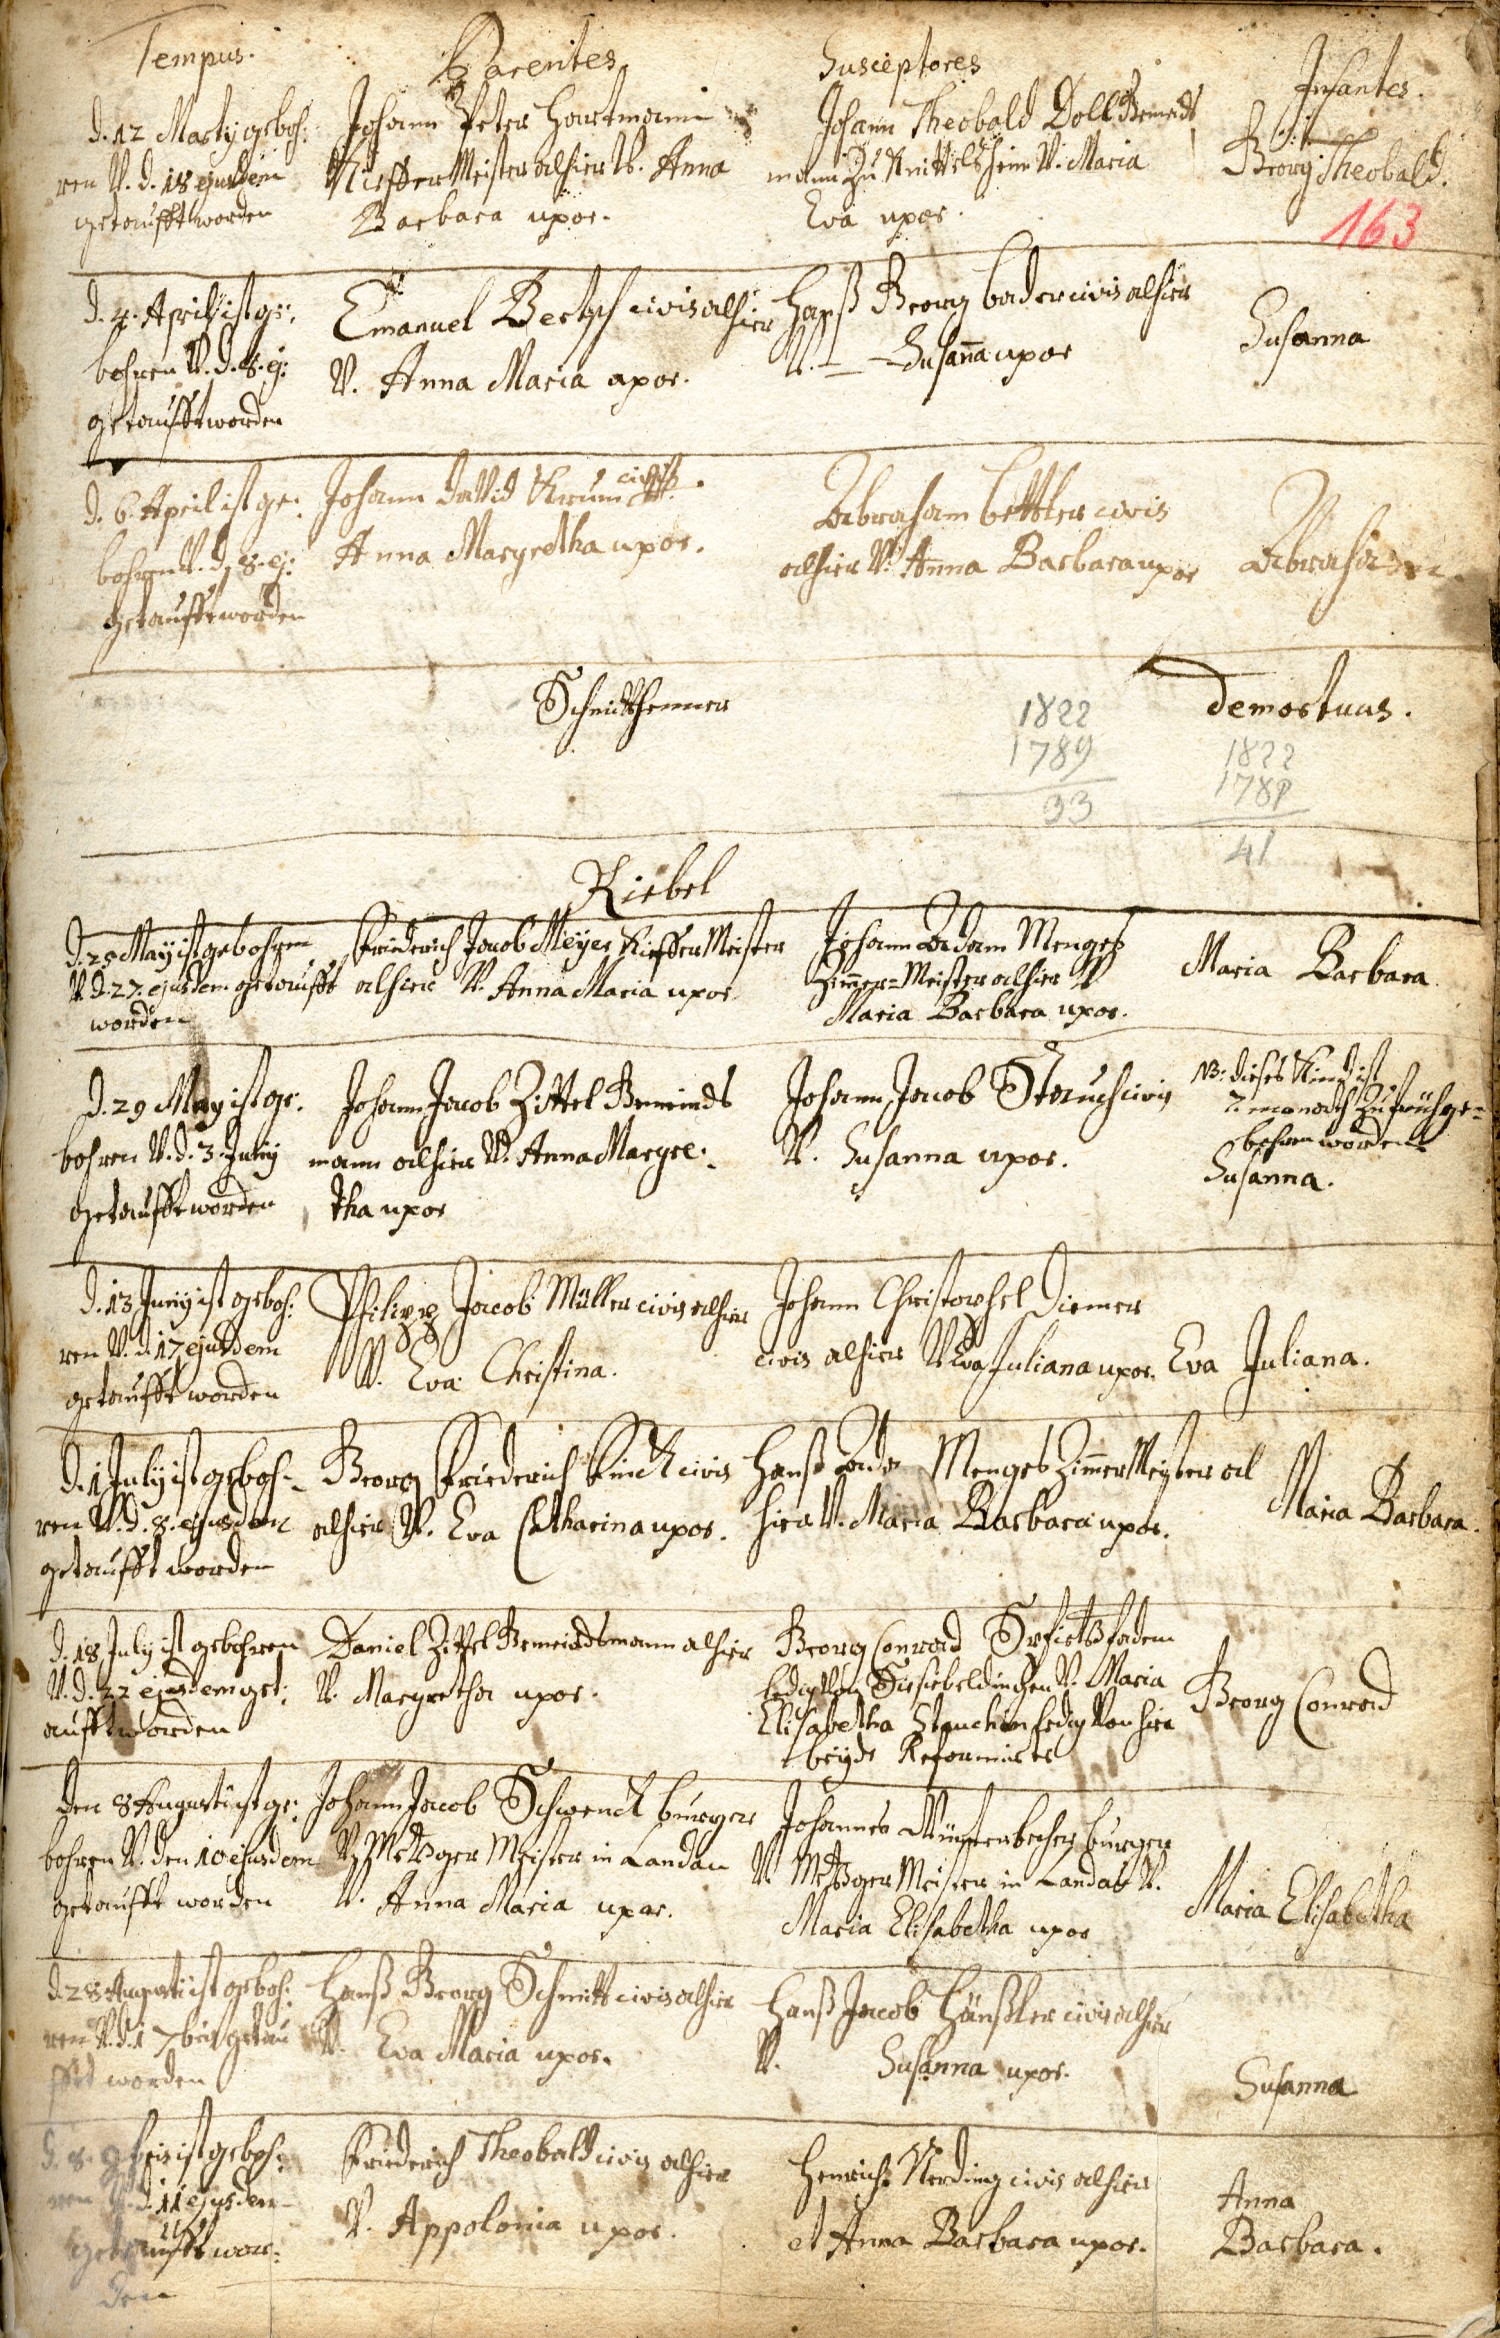 Tempus.
Parentes
Susceptores
Infantes.
d. 12 Martÿ geboh:
ren V. d. 18 ejusdem
getaufft worden
Johann Peter Hartmann
Kieffer Meister alhier V. Anna
Barbara uxor.
Johann Theobald Doll Gemeinds
mann zu Knittelsheim V. Maria
Eva uxor.
Georg Theobald.
163
d. 4. April ist ge:
bohren V. d. 8. ej:
getaufft worden
Emanuel Bertsch civis alhier
V. Anna Maria uxor.
Hanß Georg bader civis alhier
V. Susana uxor
Susanna
d. 6. April ist ge:
bohren V. d. 8. ej:
getaufft worden
Johann David Krum
Anna Margretha uxor.
Abraham bettler civis
alhier V. Anna Barbara uxor
Abraham
Schmitthenner
demortuus.
1822
1789
33
1822
1781
41
Kiebel
d. 25 May ist gebohren
V. d. 27. ejusdem getaufft
worden
Friderich Jacob Meÿer Kieffer Meister
alhier V. Anna Maria uxor
Johann Adam Menges
Zimer-Meister alhier V
Maria Barbara uxor.
Maria Barbara
d. 29 May ist ge:
bohren V. d. 3. Junÿ
getaufft worden
Johann Jacob Zittel Gemeinds
mann alhier V. Anna Margre:
tha uxor
Johann Jacob Stauch civis
V. Susanna uxor.
NB. dieses Kind ist
2. monath zu früh ge-
bohren worden
Susanna.
d. 13 Junÿ ist geboh:
ren V. d. 17 ejusdem
getaufft worden
Philipp Jacob Müller civis alhier
V. Eva Christina.
Johann Christophel Diemer
civis alhier V Eva Juliana uxor.
Eva Juliana.
d. 1 Julÿ ist geboh-
ren V. d. 8. ejusdem
getaufft worden
Georg Friederich Finck civis
alhier V. Eva Catharina uxor.
Hanß Menges Zimer Meister al
hier V. Maria Barbara uxor.
Maria Barbara.
d. 18 July ist gebohren
V. d. 22 ejusdem get:
aufft worden
Daniel Zittel Gemeindsmann alhier
V. Margretha uxor.
Georg Conrad
ledig von V. Maria
Elisabetha Stauchin ledig von hier
beÿde Reformirte
Georg Conrad
den 8 Augusti ist ge:
bohren V. den 10 ejusdem
getaufft worden
Johann Jacob Schwenck burger
V. Metzger Meister in Landau
V. Anna Maria uxor.
Johannes burger
V. Metzger Meister in Landau V.
Maria Elisabetha uxor
Maria Elisabetha
d. 28 Augusti ist geboh:
ren V. d. 1 7bris getau
fft worden
Hanß Georg Schmitt civis alhier
V. Eva Maria uxor.
Hanß Jacob Hänßler civis alhier
V. Susanna uxor.
Susanna
d. 8. ist geboh:
ren V. d. 11 ejusdem
getaufft wor:
den
Friederich Theobald civis alhier
V. Appolonia uxor.
Henrich Nerding civis alhier
et Anna Barbara uxor.
Anna
Barbara.